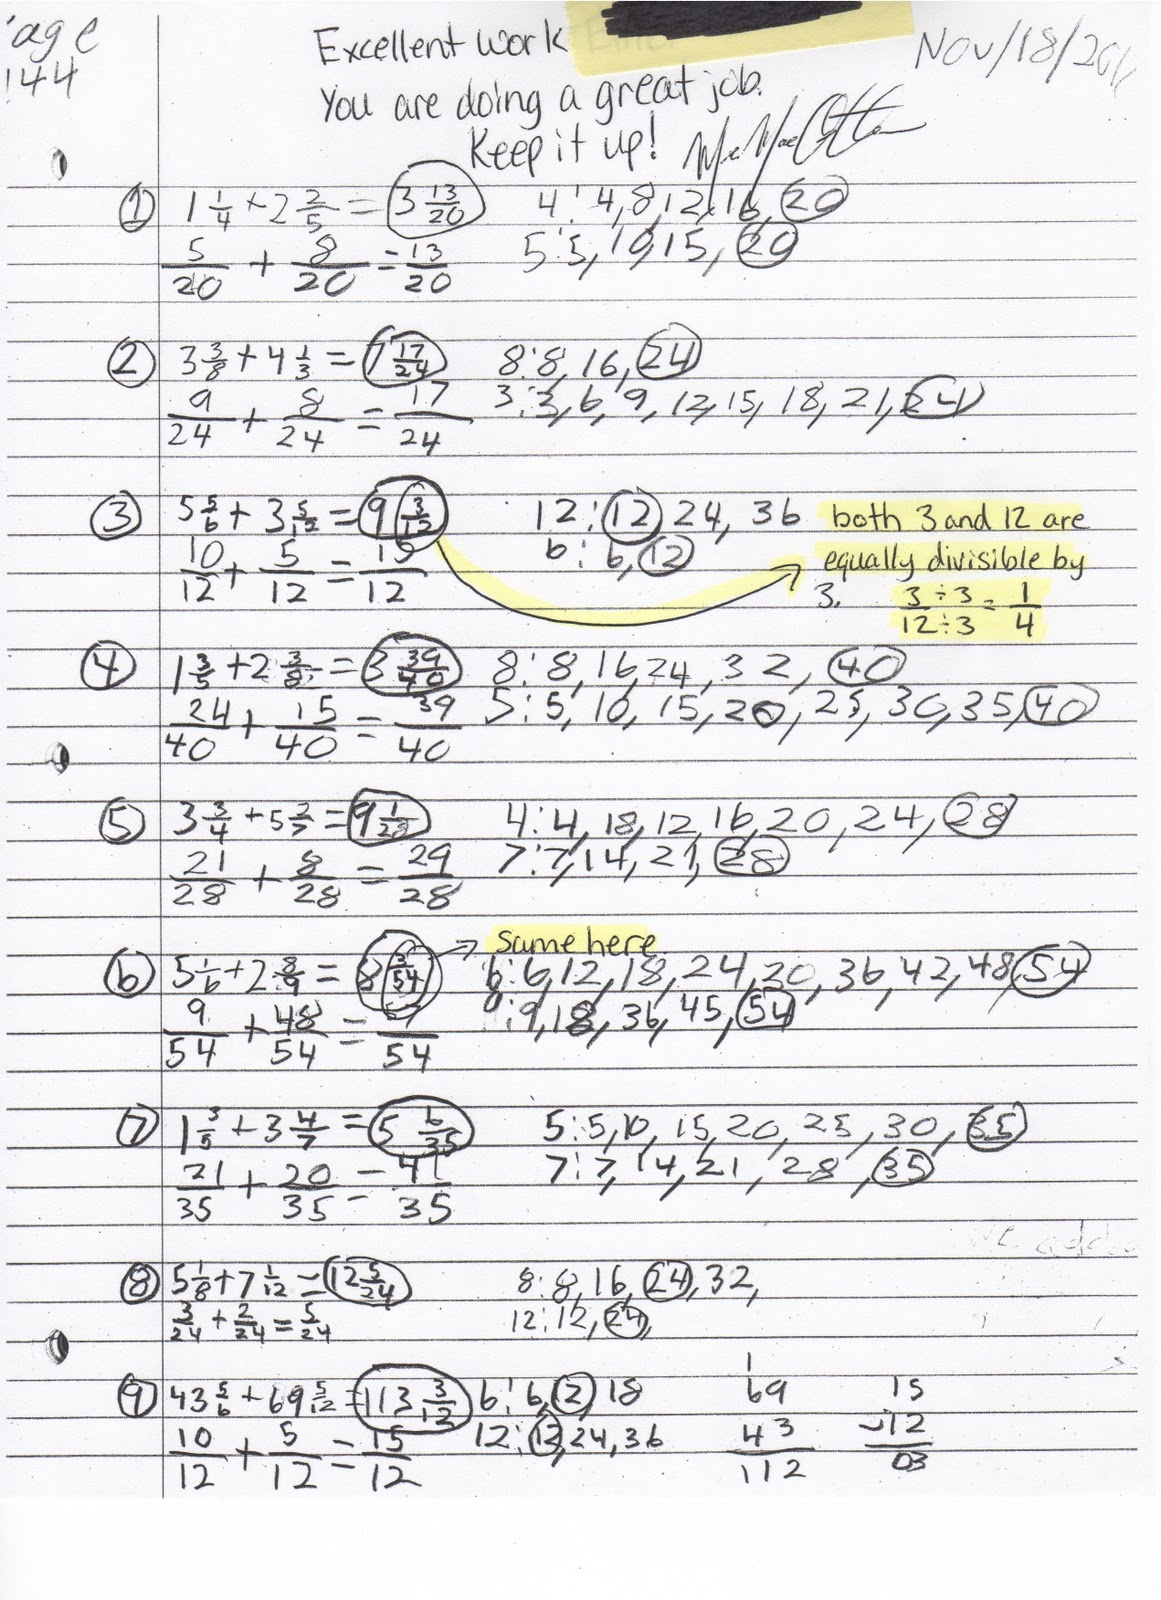 age
144
Excellent work
You are doing a great job.
Keep it up!
Nov/18/20
① 1 1/4 + 2 2/5 = 3 13/20 4: 4, 8, 12, 16, 20
5/20 + 8/20 = 13/20 5: 5, 10, 15, 20
② 3 3/8 + 4 1/3 = 7 17/24 8: 8, 16, 24
9/24 + 8/24 = 17/24 3: 3, 6, 9, 12, 15, 18, 21, 24
③ 5 5/6 + 3 5/12 = 9 3/12 12: 12, 24, 36 both 3 and 12 are
10/12 + 5/12 = 15/12 6: 6, 12 equally divisible by
3. 3÷3/12÷3 = 1/4
④ 1 3/5 + 2 3/8 = 3 39/40 8: 8, 16, 24, 32, 40
24/40 + 15/40 = 39/40 5: 5, 10, 15, 20, 25, 30, 35, 40
⑤ 3 3/4 + 5 2/7 = 9 1/28 4: 4, 18, 12, 16, 20, 24, 28
21/28 + 8/28 = 29/28 7: 7, 14, 21, 28
same here
⑥ 5 1/6 + 2 8/9 = 8 3/54 6: 6, 12, 18, 24, 30, 36, 42, 48, 54
9/54 + 48/54 = /54 9: 9, 18, 36, 45, 54
⑦ 1 3/5 + 3 4/7 = 5 6/35 5: 5, 10, 15, 20, 25, 30, 35
21/35 + 20/35 = 41/35 7: 7, 14, 21, 28, 35
⑧ 5 1/8 + 7 1/12 = 12 5/24 8: 8, 16, 24, 32,
3/24 + 2/24 = 5/24 12: 12, 24,
1
⑨ 43 5/6 + 69 5/12 = 113 3/12 6: 6, 12, 18 69 15
10/12 + 5/12 = 15/12 12: 12, 24, 36 43 -12
112 03